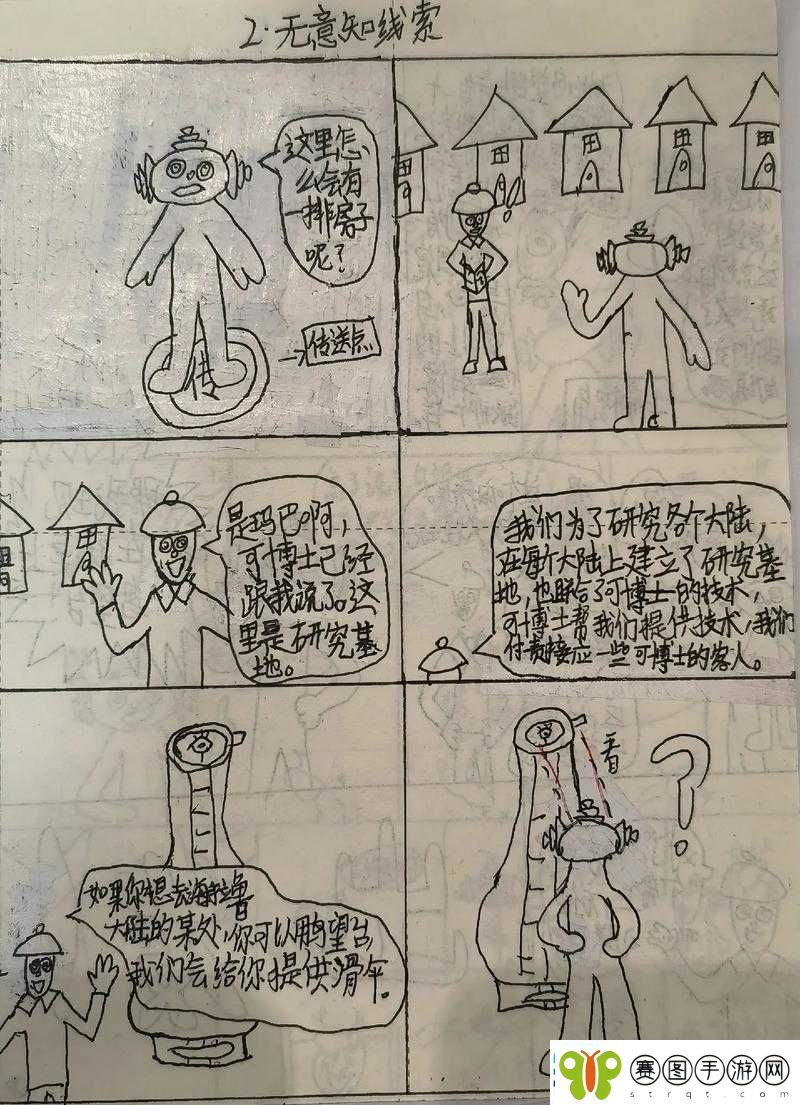 2.无意知线索
这里怎
么会有
一排房子
呢？
传
传送点
!
是玛巴啊，
可博士已经
跟我说了。这
里是研究基
地。
我们为了研究各个大陆，
在每个大陆上建立了研究基
地，也联合了可博士的技术，
可博士帮我们提供技术，我们
付责接应一些可博士的客人。
如果你想去海拉鲁
大陆的某处，你可以
望台，
我们会给你提供滑伞。
看
?
赛图手游网
strqt.com